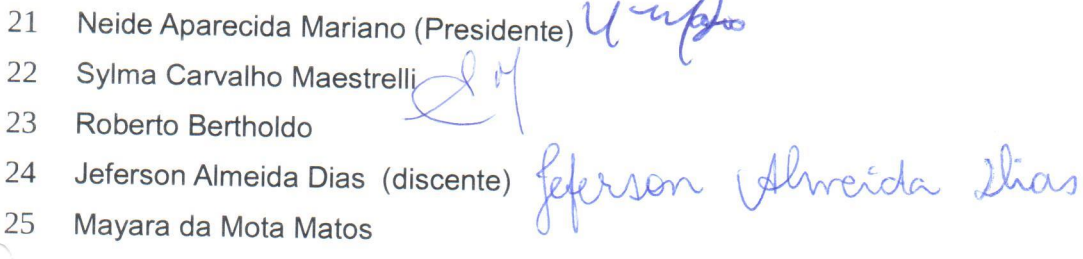 21 Neide Aparecida Mariano (Presidente)
22 Sylma Carvalho Maestrelli
23 Roberto Bertholdo
24 Jeferson Almeida Dias (discente) Jeferson Almeida Dias
25 Mayara da Mota Matos